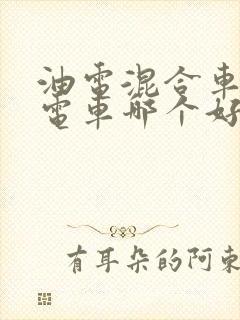 油電混合車
電車哪个好
有耳朵的阿東